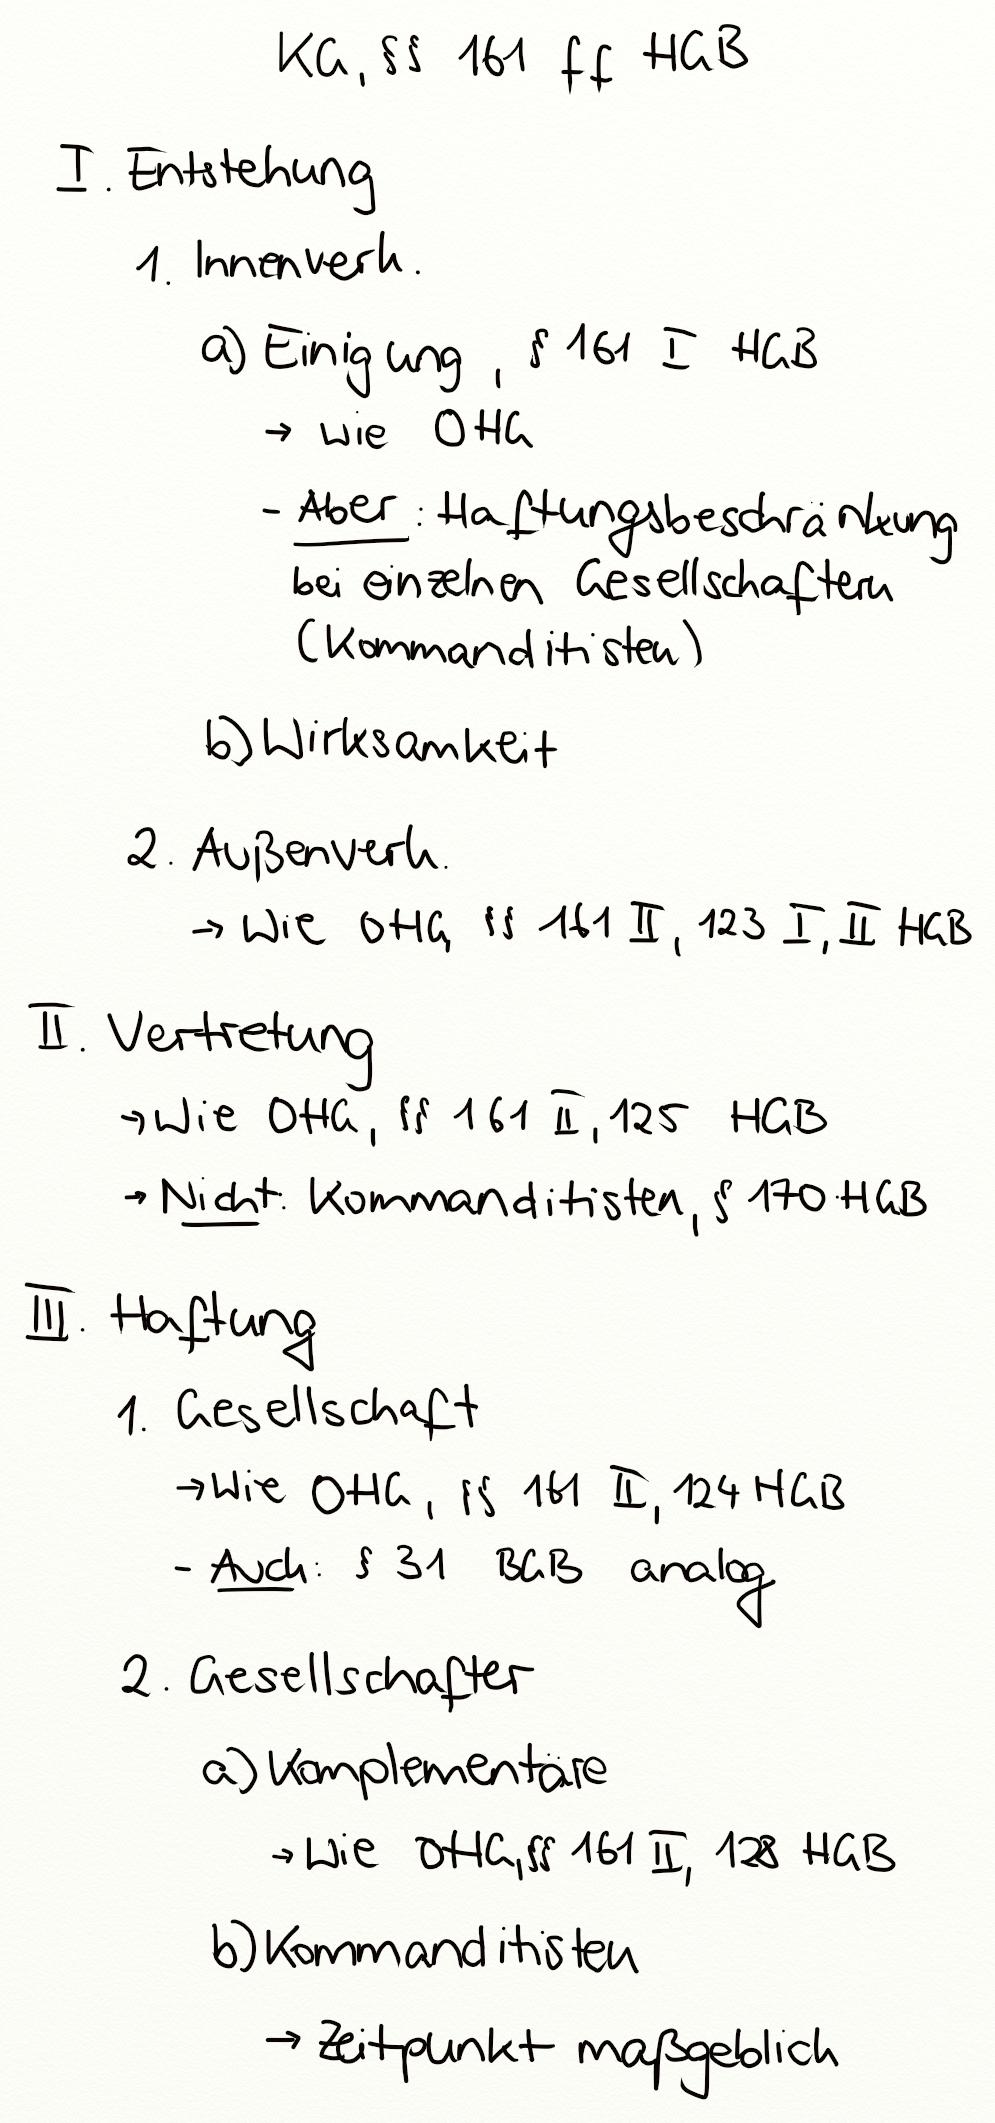 KG, §§ 161 ff HGB
I. Entstehung
1. Innenverh.
a) Einigung, § 161 I HGB
→ wie OHG
- Aber: Haftungsbeschränkung
bei einzelnen Gesellschaftern
(Kommanditisten)
b) Wirksamkeit
2. Außenverh.
→ Wie OHG, §§ 161 II, 123 I, II HGB
II. Vertretung
→ Wie OHG, §§ 161 II, 125 HGB
→ Nicht: Kommanditisten, § 170 HGB
III. Haftung
1. Gesellschaft
→ Wie OHG, §§ 161 II, 124 HGB
- Auch: § 31 BGB analog
2. Gesellschafter
a) Komplementäre
→ Wie OHG, §§ 161 II, 128 HGB
b) Kommanditisten
→ Zeitpunkt maßgeblich